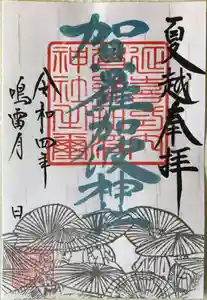 夏越奉拝
賀羅加波神社
令和四年
鳴雷月 日